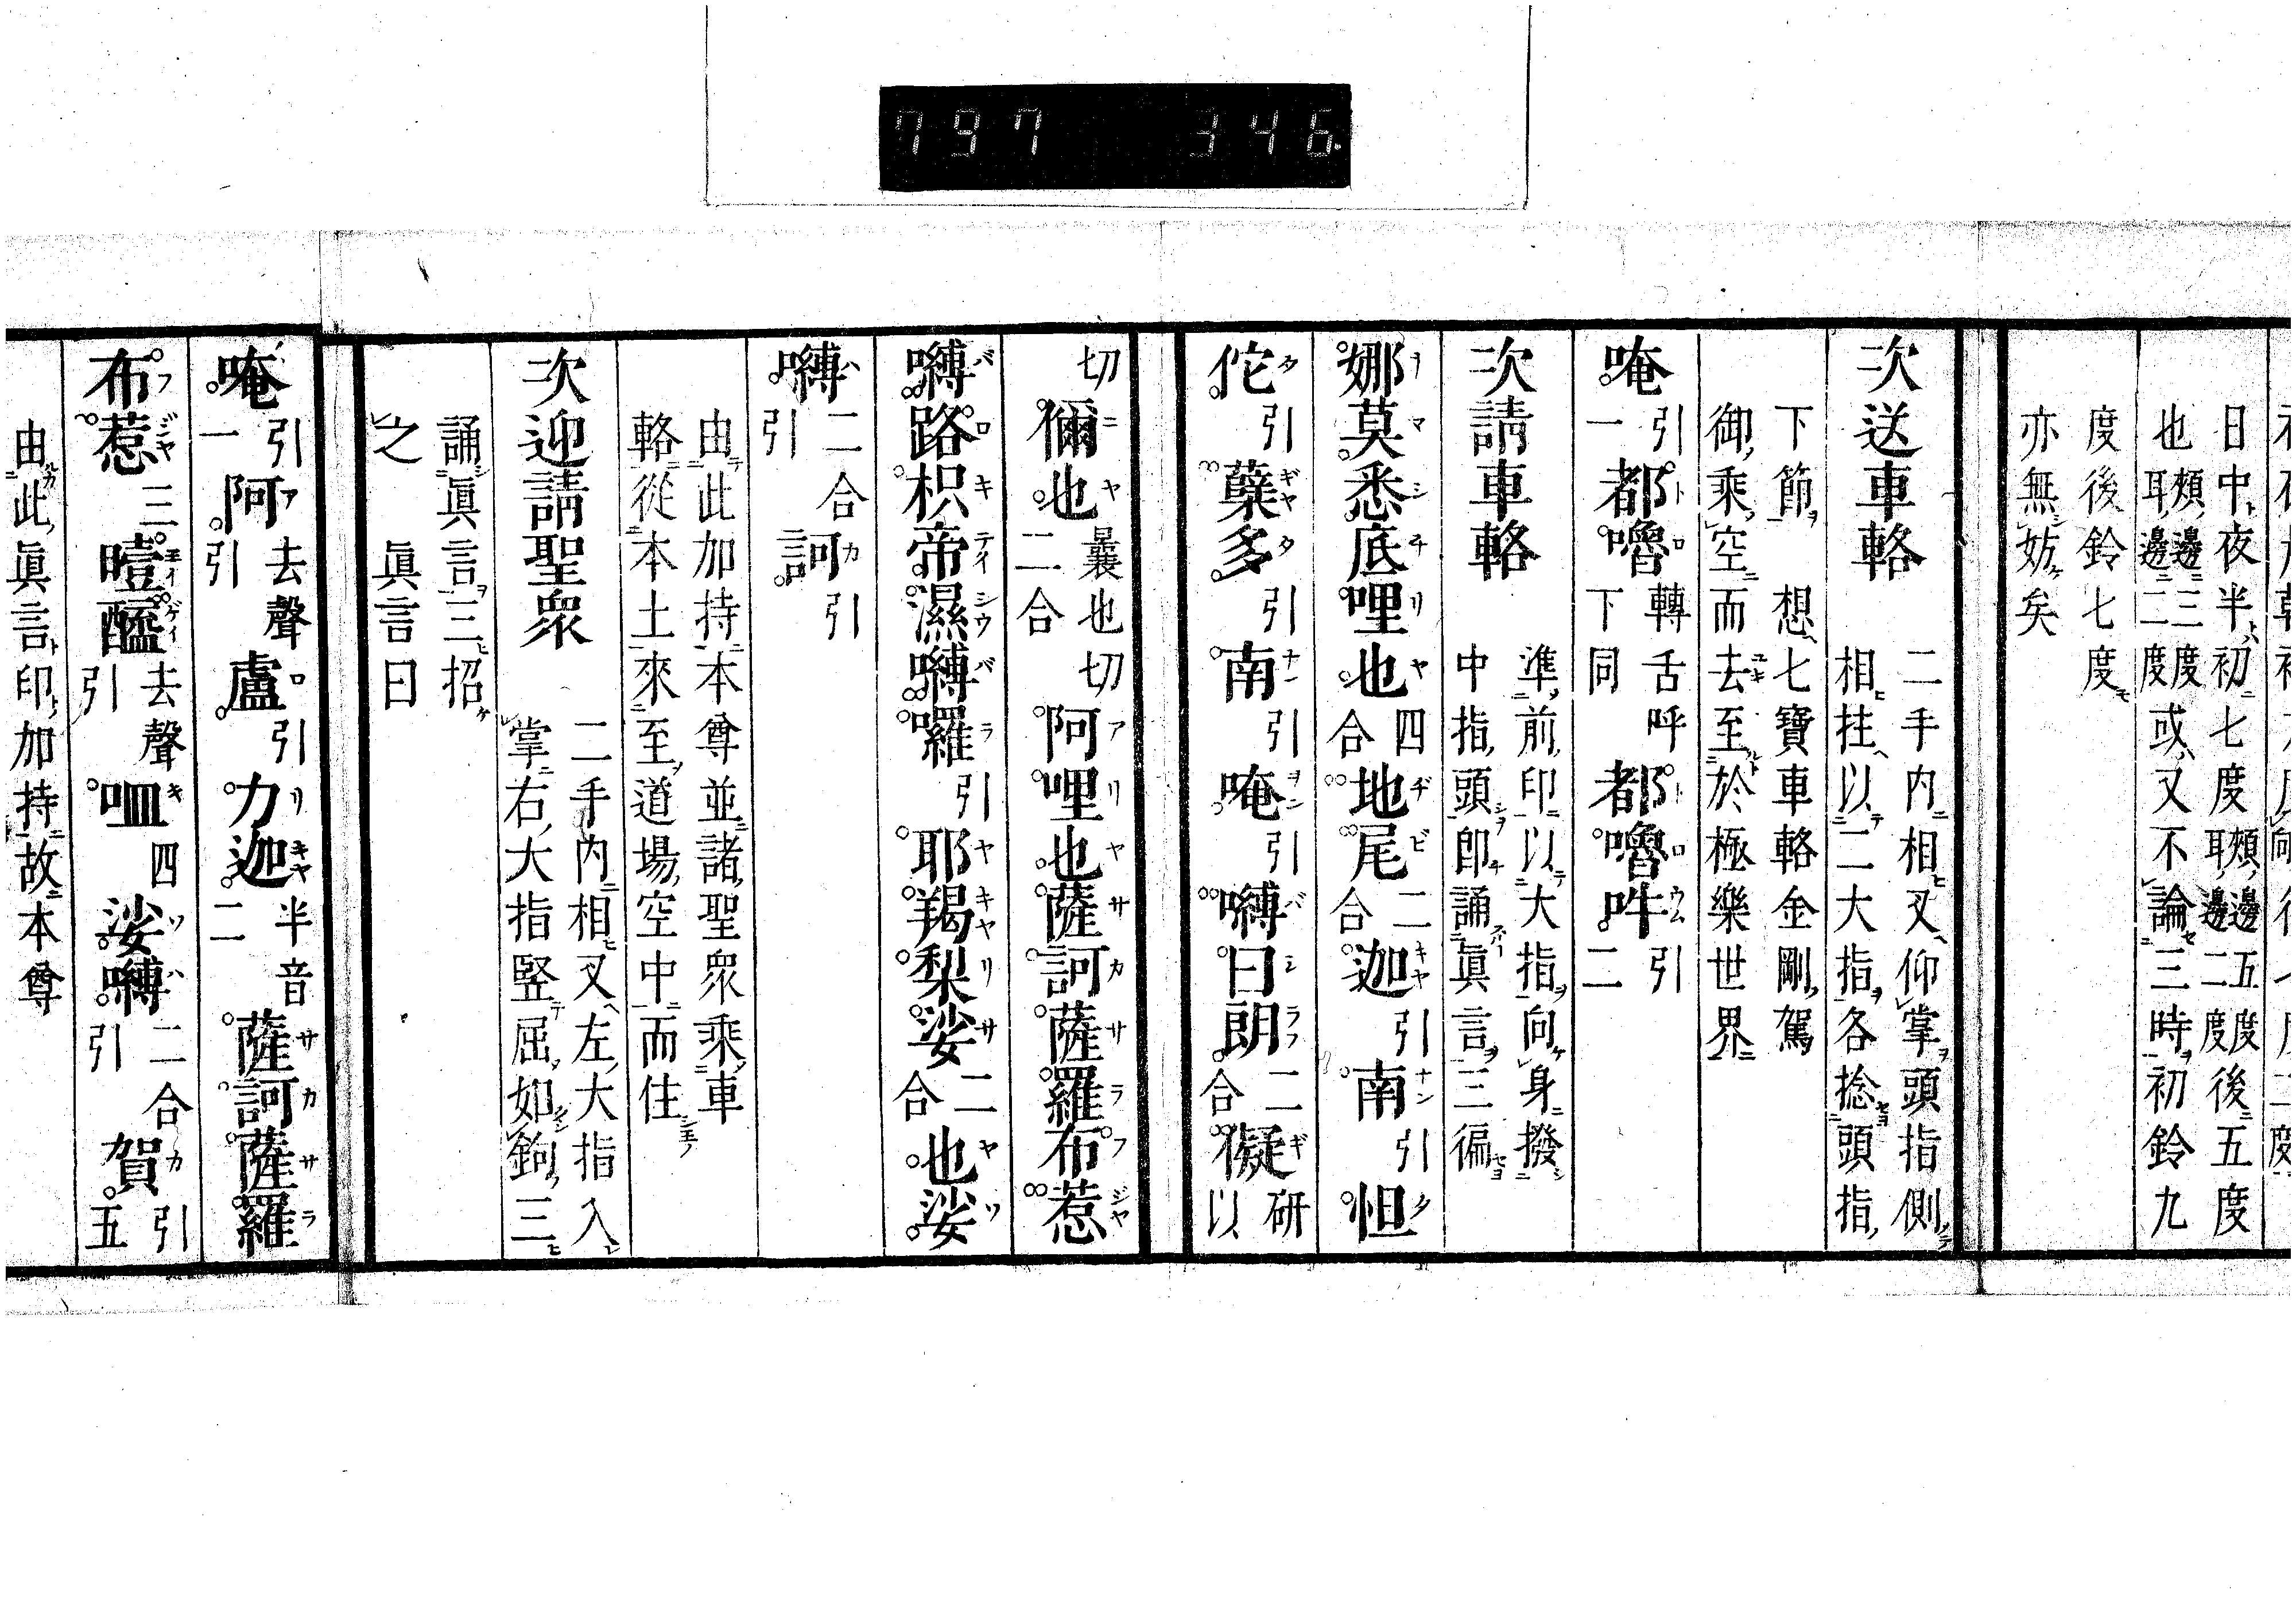 797 346
日中夜半初七度頰邊五度耳邊二度後五度
也頰邊三度耳邊二度或又不論三時初鈴九
度後鈴七度
亦無妨矣
次送車輅
二手内相叉仰掌頭指側
相拄以二大指各捻頭指
下節 想七寶車輅金剛駕
御乘空而去至於極樂世界
唵引一都嚕轉舌呼下同都嚕吽引二
次請車輅
準前印以大指向身撥
中指頭即誦眞言三徧
娜莫悉底哩也四合地尾二合迦引南引怛
佗引蘖多引南引唵引嚩日朗二合儗研以
切儞也曩也切二合阿哩也薩訶薩羅布惹
嚩路枳帝濕嚩囉引耶羯梨娑二合也娑
嚩二合引訶引
由此加持本尊並諸聖衆乘車
輅從本土來至道場空中而住
次迎請聖衆
二手内相叉左大指入
掌右大指竪屈如鉤三
誦眞言三招
之 眞言曰
唵引一阿去聲引盧引力迦半音二薩訶薩羅
布惹三曀醯去聲引呬四娑嚩二合引賀引五
由此眞言印加持故本尊